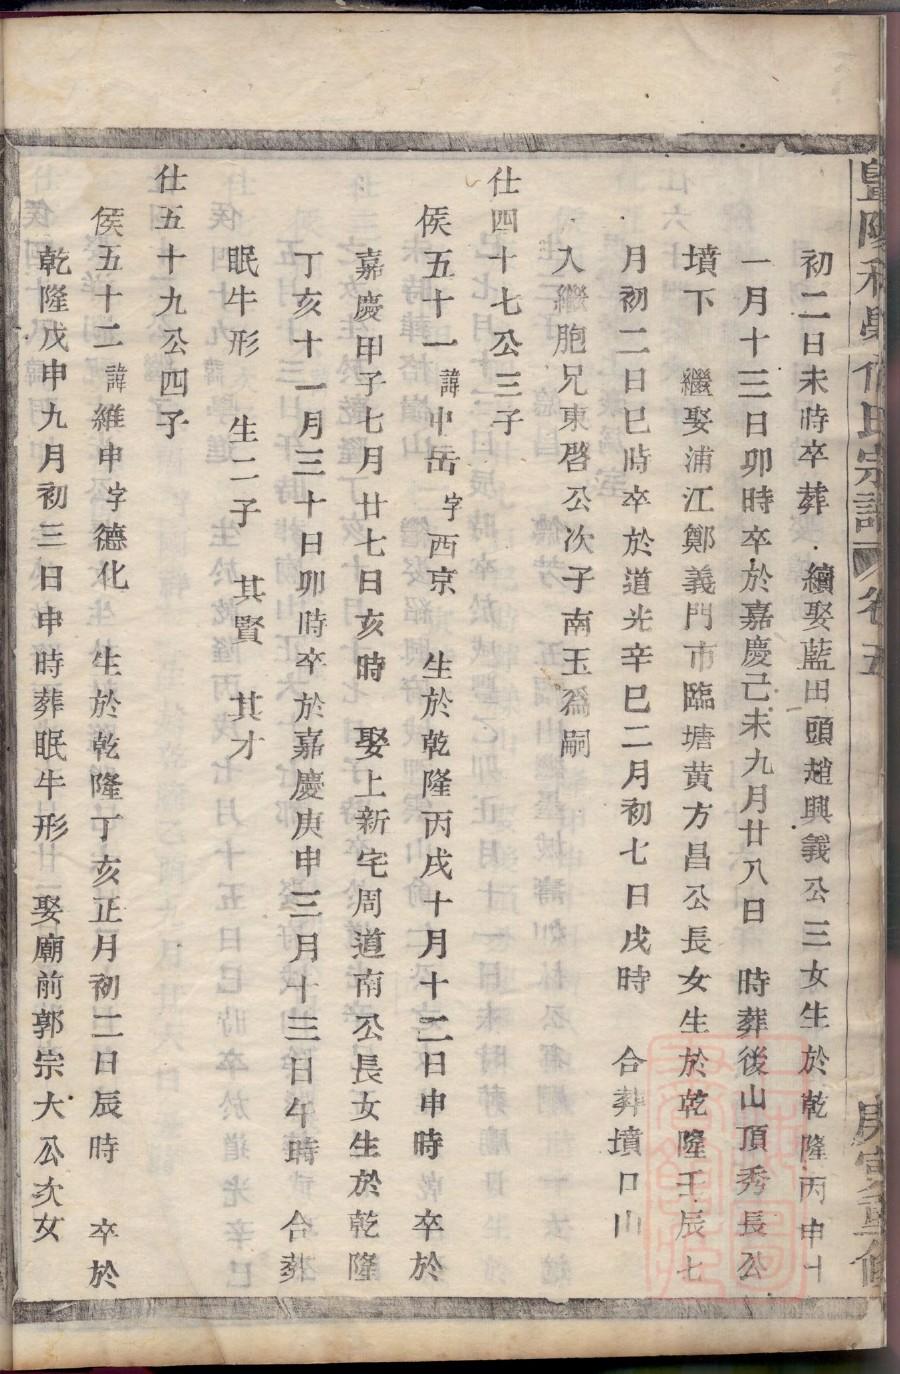 初二日未時卒葬 續娶藍田頭趙興義公三女生於乾隆丙申十
一月十三日卯時卒於嘉慶己未九月廿八日 時葬後山頂秀長公
墳下 繼娶浦江鄭義門市臨塘黄方昌公長女生於乾隆壬辰七
月初二日巳時卒於道光辛巳二月初七日戌時 合葬墳口山
入繼胞兄東啓公次子南玉爲嗣
仕四十七公三子
侯五十一諱中岳字西京 生於乾隆丙戌十月十二日申時卒於
嘉慶甲子七月廿七日亥時 娶上新宅周道南公長女生於乾隆
丁亥十一月三十日卯時卒於嘉慶庚申三月十三日午時 合葬
眠牛形 生二子 其賢 其才
仕五十九公四子
侯五十二諱維申字德化 生於乾隆丁亥正月初二日辰時 卒於
乾隆戊申九月初三日申時葬眠牛形 娶廟前郭宗大公次女